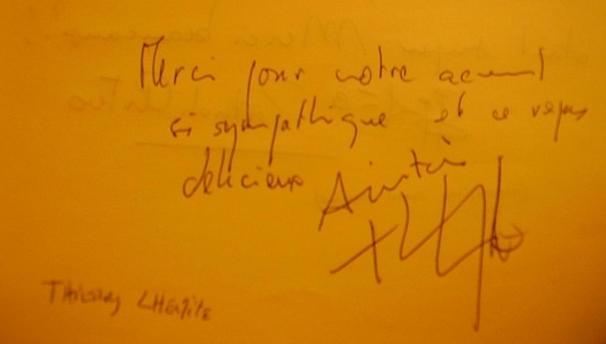 Merci pour votre accueil
si sympathique et ce repas
délicieux Amitiés
Thierry LHermitte